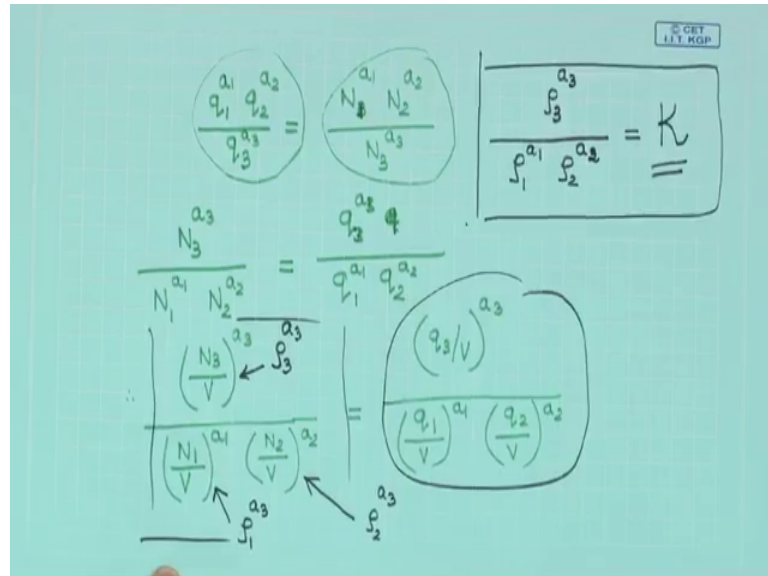 © CET
I.I.T. KGP
q₁^a₁ q₂^a₂ / q₃^a₃ = N₁^a₁ N₂^a₂ / N₃^a₃
ρ₃^a₃ / ρ₁^a₁ ρ₂^a₂ = K
N₃^a₃ / N₁^a₁ N₂^a₂ = q₃^a₃ / q₁^a₁ q₂^a₂
∴ (N₃/V)^a₃ / (N₁/V)^a₁ (N₂/V)^a₂ = (q₃/V)^a₃ / (q₁/V)^a₁ (q₂/V)^a₂
ρ₃^a₃
ρ₁^a₃
ρ₂^a₃